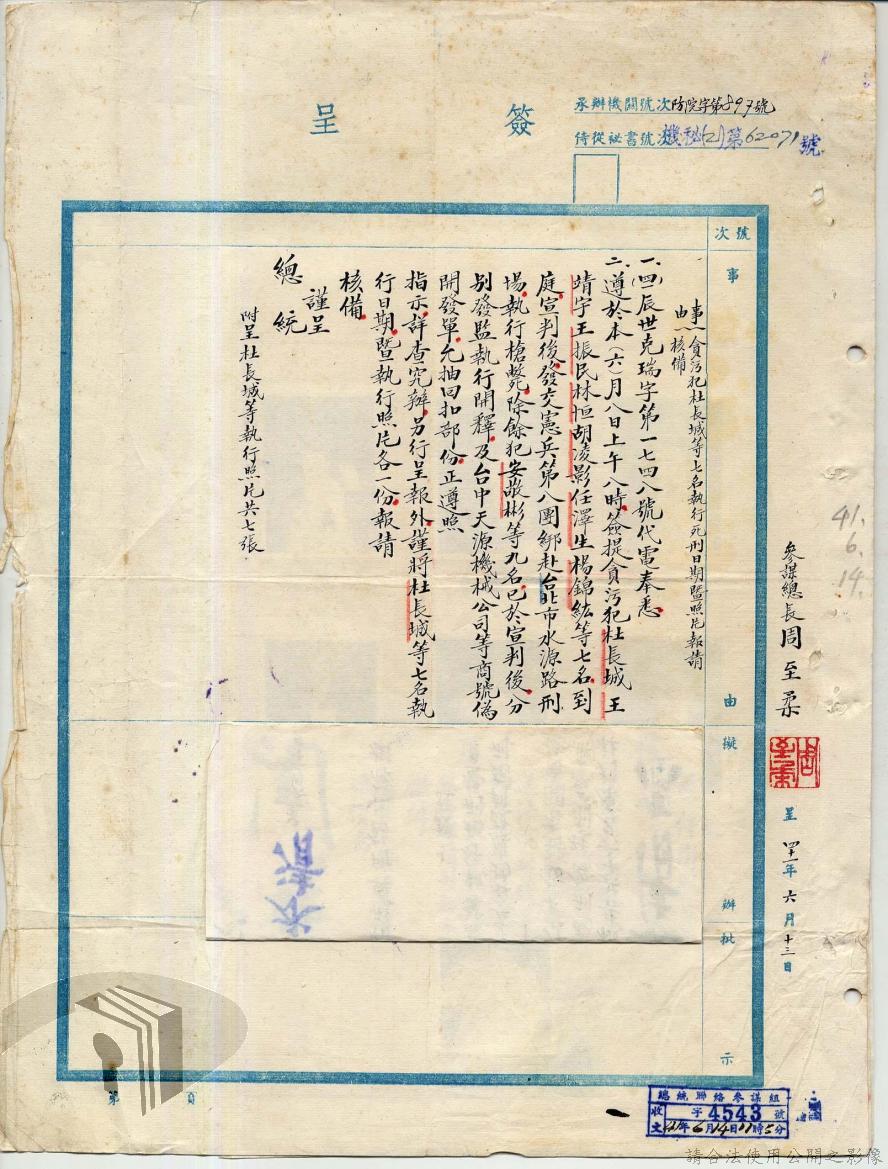 簽呈
承辦機關號次防院字第897號
侍從祕書號次機秘(乙)第62071號
號次
事由擬辦批示
參謀總長周至柔
呈 四十一年六月十三日
41.6.14.
事由：貪污犯杜長城等七名執行死刑日期暨照片報請
核備
一、(四一)辰世克瑞字第一七四八號代電奉悉
二、遵於本(六)月八日上午八時簽提貪污犯杜長城王
靖宇王振民林恒胡凌影任澤生楊錦紘等七名到
庭宣判後發交憲兵第八團綁赴台北市水源路刑
場執行槍斃除餘犯安敬彬等九名已於宣判後分
別發監執行開釋及台中天源機械公司等商號偽
開發單允抽回扣部份正遵照
指示詳查究辦另行呈報外謹將杜長城等七名執
行日期暨執行照片各一份報請
核備
謹呈
總統
附呈杜長城等執行照片共七張
第 頁
總統聯絡參謀組
收文 字4543號
41年6月14日11時5分
請合法使用公開之影像